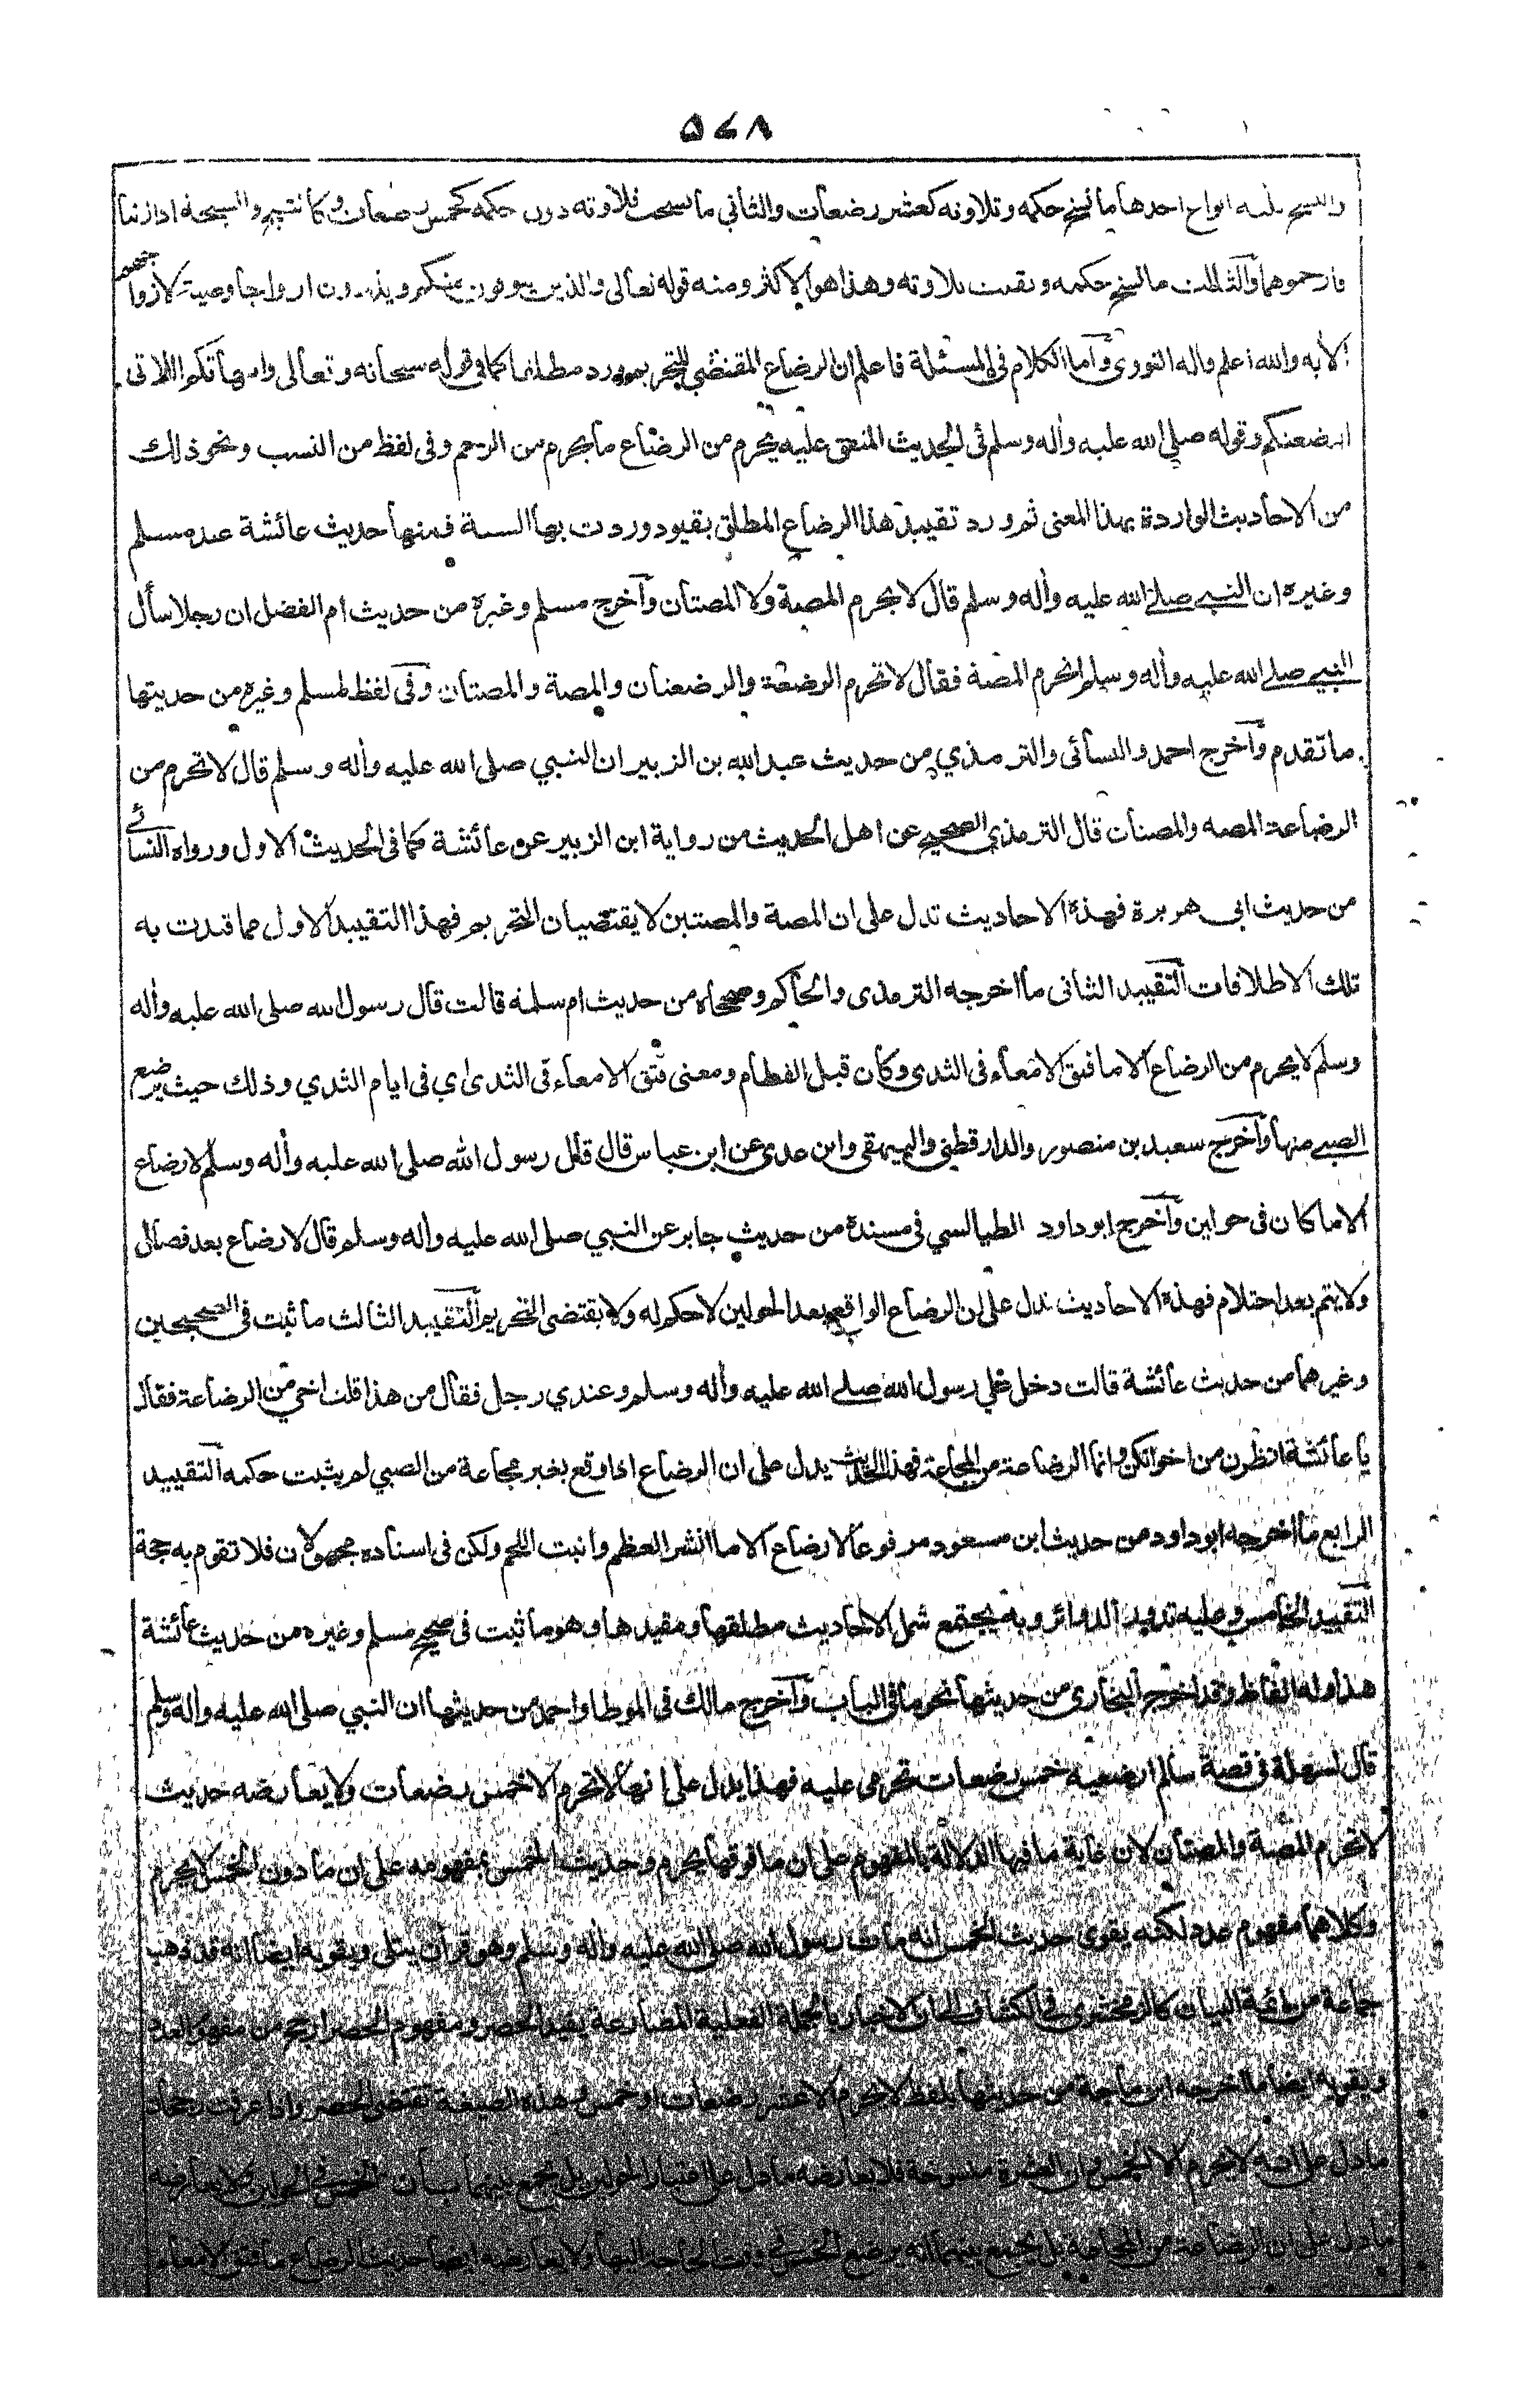 ٥٤٨
والنسخ ثلثه انواع احدها ما نسخ حكمه وتلاوته كعشر رضعات والثاني ما نسخت تلاوته دون حكمه كخمس رضعات وكالشيخ والشيخة اذا زنيا
فارجموهما والثالث ما نسخ حكمه وبقيت تلاوته وهذا هو الاكثر ومنه قوله تعالى والذين يتوفون منكم ويذرون ازواجا وصية لازواجهم
الآية والله اعلم قاله النووى وآما الكلام فى المسئلة فاعلم ان الرضاع المقتضى للتحريم ورد مطلقا كما فى قوله سبحانه وتعالى وامهاتكم اللاتى
ارضعنكم وقوله صلى الله عليه وأله وسلم فى الحديث المتفق عليه يحرم من الرضاع ما يحرم من الرحم وفى لفظ من النسب ونحو ذلك
من الاحاديث الواردة بهذا المعنى ثم ورد تقييد هذا الرضاع المطلق بقيود وردت بها السنة فمنها حديث عائشة عند مسلم
وغيره ان النبي صلى الله عليه وأله وسلم قال لا يحرم المصة ولا المصتان وآخرج مسلم وغيره من حديث ام الفضل ان رجلا سأل
النبي صلى الله عليه وأله وسلم اتحرم المصة فقال لا تحرم الرضعة والرضعتان والمصة والمصتان وفى لفظ لمسلم وغيره من حديثها
ما تقدم وآخرج احمد والنسائى والترمذي من حديث عبد الله بن الزبير ان النبي صلى الله عليه وأله وسلم قال لا تحرم من
الرضاعة المصة والمصتان قال الترمذي الصحيح عن اهل الحديث من رواية ابن الزبير عن عائشة كما فى الحديث الاول ورواه النسائے
من حديث ابي هريرة فهذه الاحاديث تدل على ان المصة والمصتين لا يقتضيان التحريم فهذا التقييد الاول مما قيدت به
تلك الاطلاقات آلتقييد الثانى ما اخرجه الترمذى والحاكم وصححاه من حديث ام سلمة قالت قال رسول الله صلى الله عليه وأله
وسلم لا يحرم من الرضاع الا ما فتق الامعاء فى الثدى وكان قبل الفطام ومعنى فتق الامعاء فى الثدى اي فى ايام الثدي وذلك حيث يرضع
الصبے منها وآخرج سعيد بن منصور والدارقطني والبيهقى وابن عدى عن ابن عباس قال قال رسول الله صلى الله عليه وأله وسلم لا رضاع
الا ما كان فى حولين وآخرج ابو داود الطيالسي فى مسنده من حديث جابر عن النبي صلى الله عليه وأله وسلم قال لا رضاع بعد فصال
ولا يتم بعد احتلام فهذه الاحاديث تدل على ان الرضاع الواقع بعد الحولين لا حكم له ولا يقتضى التحريم آلتقييد الثالث ما ثبت فى الصحيحين
وغيرهما من حديث عائشة قالت دخل علي رسول الله صلے الله عليه وأله وسلم وعندي رجل فقال من هذا قلت اخي من الرضاعة فقال
يا عائشة انظرن من اخوانكن وانما الرضاعة من المجاعة فهذا الحديث يدل على ان الرضاع اذا وقع بغير مجاعة من الصبي لم يثبت حكمه آلتقييد
الرابع ما اخرجه ابو داود من حديث ابن مسعود مرفوعا لا رضاع الا ما انشر العظم وانبت اللحم ولكن فى اسناده مجهولان فلا تقوم به حجة
التقييد الخامس وعليه تدور الدوائر وبه يجتمع شمل الاحاديث مطلقها ومقيدها وهو ما ثبت فى صحيح مسلم وغيره من حديث عائشة
هذا وله الفاظ وقد اخرج البخارى من حديثها نحو ما فى الباب وآخرج مالك فى الموطا واحمد من حديثها ان النبي صلى الله عليه وأله وسلم
قال لسهلة فى قصة سالم ارضعيه خمس رضعات تحرمى عليه فهذا يدل على انها لا تحرم الا خمس رضعات ولا يعارضه حديث
لا تحرم المصة والمصتان لان غاية ما فيها الدلالة بالمفهوم على ان ما فوقها يحرم وحديث الخمس بمفهومه على ان ما دون الخمس لا يحرم
وكلاهما مفهوم عدد لكنه يقوى حديث الخمس انه مات رسول الله صلى الله عليه وأله وسلم وهو قرآن يتلى ويقويه ايضا انه قد ذهب
جماعة من ائمة البيان كالزمخشرى فى الكشاف الى ان الاخبار بالجملة الفعلية المضارعة يفيد الحصر ومفهوم الحصر ارجح من مفهوم العدد
ويقويه ايضا ما اخرجه ابن ماجة من حديثها بلفظ لا تحرم الا عشر رضعات او خمس وهذه الصيغة تقتضى الحصر واذا عرفت رجحان
ما دل على انه لا تحرم الا الخمس وان العشرة منسوخة فلا يعارضه ما دل على اعتبار الحولين بل يجمع بينهما بان الخمس فى الحولين ولا يعارضه
ما دل على ان الرضاعة من المجاعة بل يجمع بينهما انه يرضع الخمس فى وقت الحاجة اليها ولا يعارضه ايضا حديث الرضاع ما فتق الامعاء